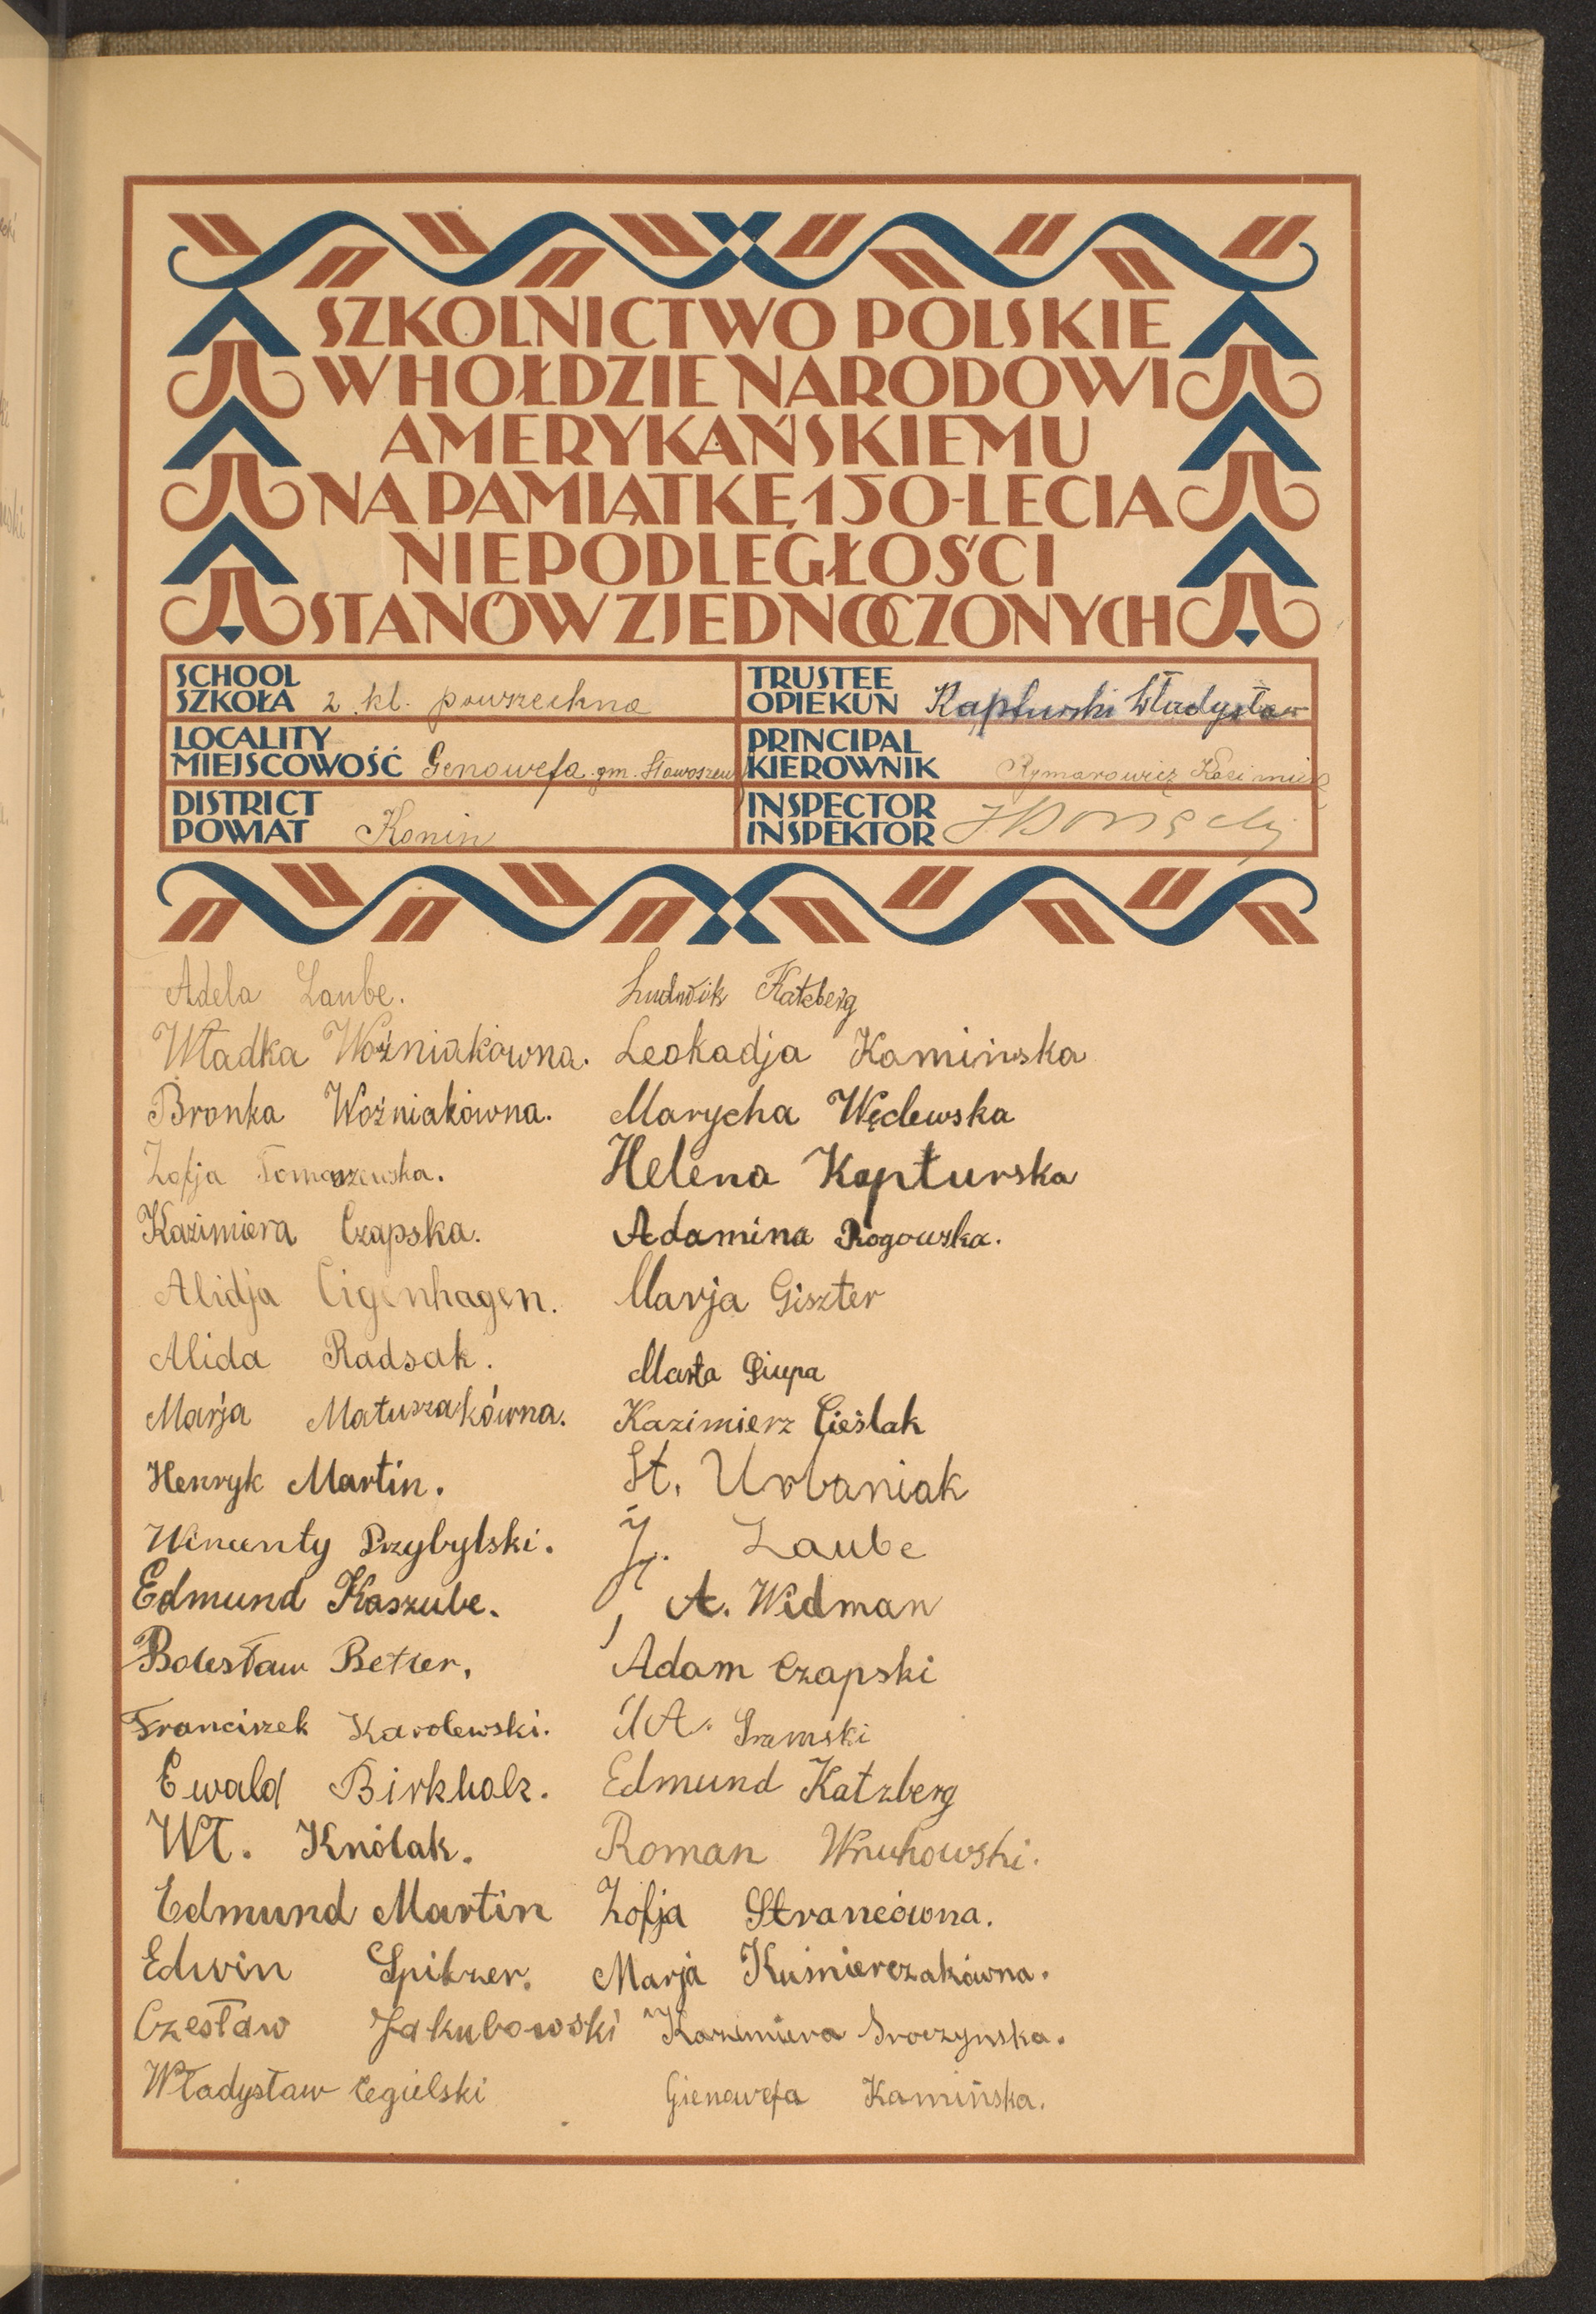 SZKOLNICTWO POLSKIE
W HOŁDZIE NARODOWI
AMERYKAŃSKIEMU
NA PAMIĄTKĘ 150-LECIA
NIEPODLEGŁOŚCI
STANÓW ZJEDNOCZONYCH
SCHOOL
SZKOŁA 2 kl. powszechna
LOCALITY
MIEJSCOWOŚĆ Genowefa gm. Sławoszew
DISTRICT
POWIAT Konin
TRUSTEE
OPIEKUN Kapturski Władysław
PRINCIPAL
KIEROWNIK Rymarowicz Kazimierz
INSPECTOR
INSPEKTOR
Adela Laube.
Władka Woźniakówna.
Bronka Woźniakówna.
Zofja Tomaszewska.
Kazimiera Czapska.
Alidja Eigenhagen.
Alida Radsak.
Marja Matuszakówna.
Henryk Martin.
Wincenty Przybylski.
Edmund Kaszube.
Bolesław Betker.
Franciszek Karolewski.
Ewald Birkholz.
Wł. Knólak.
Edmund Martin
Edwin Spitzer.
Czesław Jakubowski
Władysław Cegielski
Ludwik Katzberg
Leokadja Kamińska
Marycha Węclewska
Helena Kapturska
Adamina Rogowska.
Marja Giszter
Marta
Kazimierz Cieślak
St. Urbaniak
J. Laube
A. Widman
Adam Czapski
A. Sramski
Edmund Katzberg
Roman Wnukowski.
Zofja Strancówna.
Marja Kuśmierczakówna.
Kazimiera Sroczynska.
Gienowefa Kamińska.